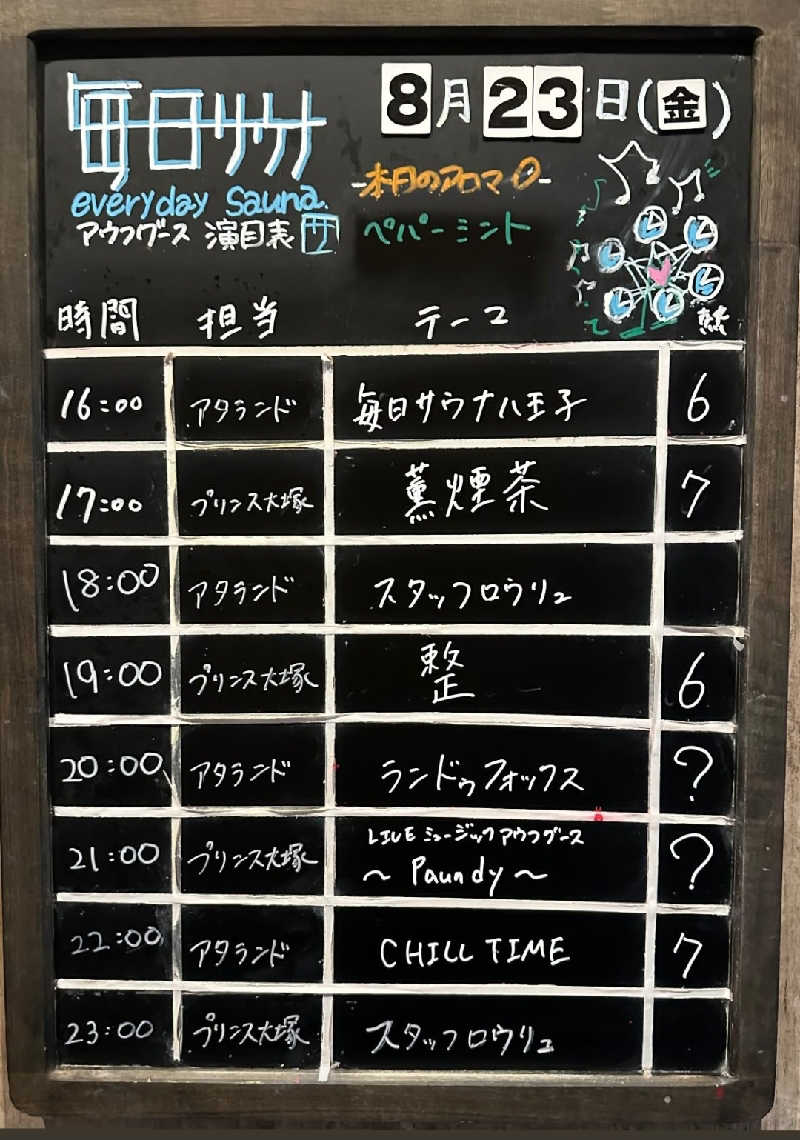 毎日サウナ
8月23日(金)
everyday Sauna.
アウフグース 演目表 サ
-本日のアロマ-
ペパーミント
時間 担当 テーマ 熱
16:00 アタランド 毎日サウナ八王子 6
17:00 プリンス大塚 薫煙茶 7
18:00 アタランド スタッフロウリュ
19:00 プリンス大塚 整 6
20:00 アタランド ランドゥフォックス ?
21:00 プリンス大塚 LIVE ミュージックアウフグース ?
〜 Paundy 〜
22:00 アタランド CHILL TIME 7
23:00 プリンス大塚 スタッフロウリュ